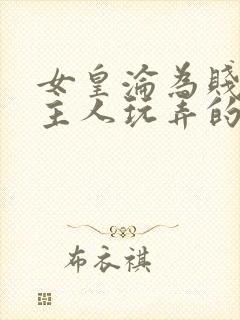 女皇淪為賤
主人玩弄的
布衣祺